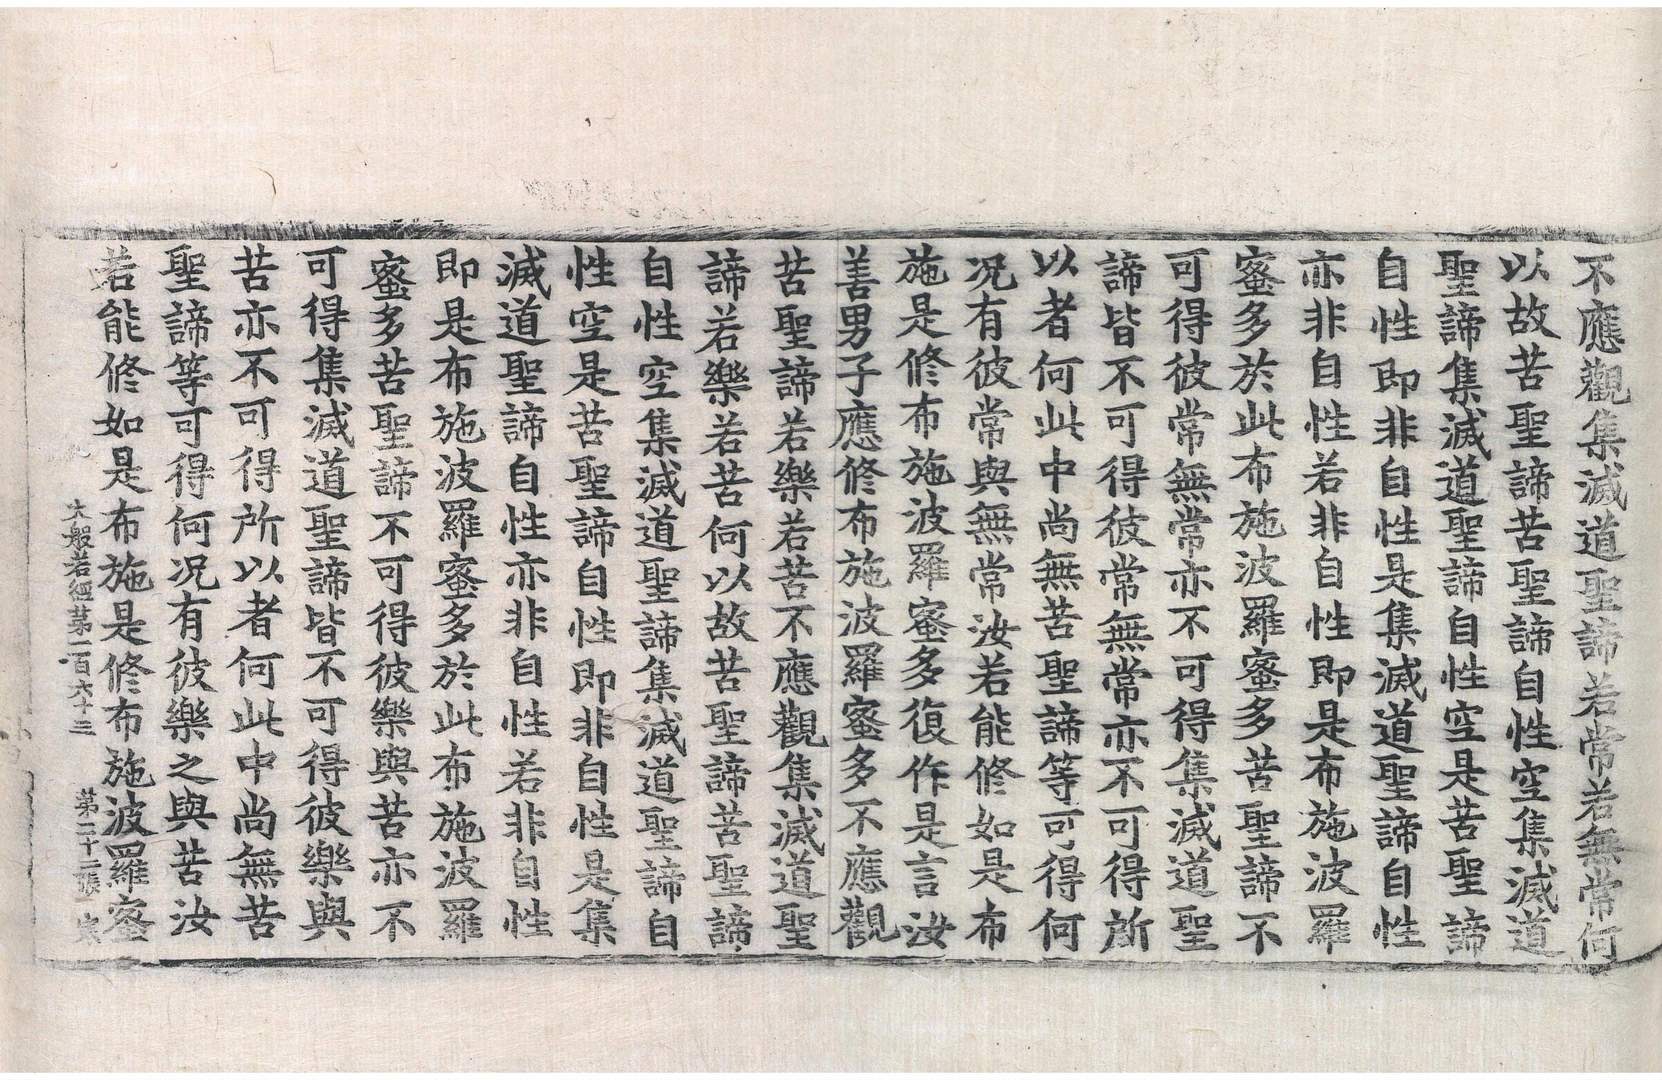 不應觀集滅道聖諦若常若無常何
以故苦聖諦苦聖諦自性空集滅道
聖諦集滅道聖諦自性空是苦聖諦
自性即非自性是集滅道聖諦自性
亦非自性若非自性即是布施波羅
蜜多於此布施波羅蜜多苦聖諦不
可得彼常無常亦不可得集滅道聖
諦皆不可得彼常無常亦不可得所
以者何此中尚無苦聖諦等可得何
况有彼常與無常汝若能修如是布
施是修布施波羅蜜多復作是言汝
善男子應修布施波羅蜜多不應觀
苦聖諦若樂若苦不應觀集滅道聖
諦若樂若苦何以故苦聖諦苦聖諦
自性空集滅道聖諦集滅道聖諦自
性空是苦聖諦自性即非自性是集
滅道聖諦自性亦非自性若非自性
即是布施波羅蜜多於此布施波羅
蜜多苦聖諦不可得彼樂與苦亦不
可得集滅道聖諦皆不可得彼樂與
苦亦不可得所以者何此中尚無苦
聖諦等可得何况有彼樂之與苦汝
若能修如是布施是修布施波羅蜜
大般若經第一百六十三 第二十二張 寒